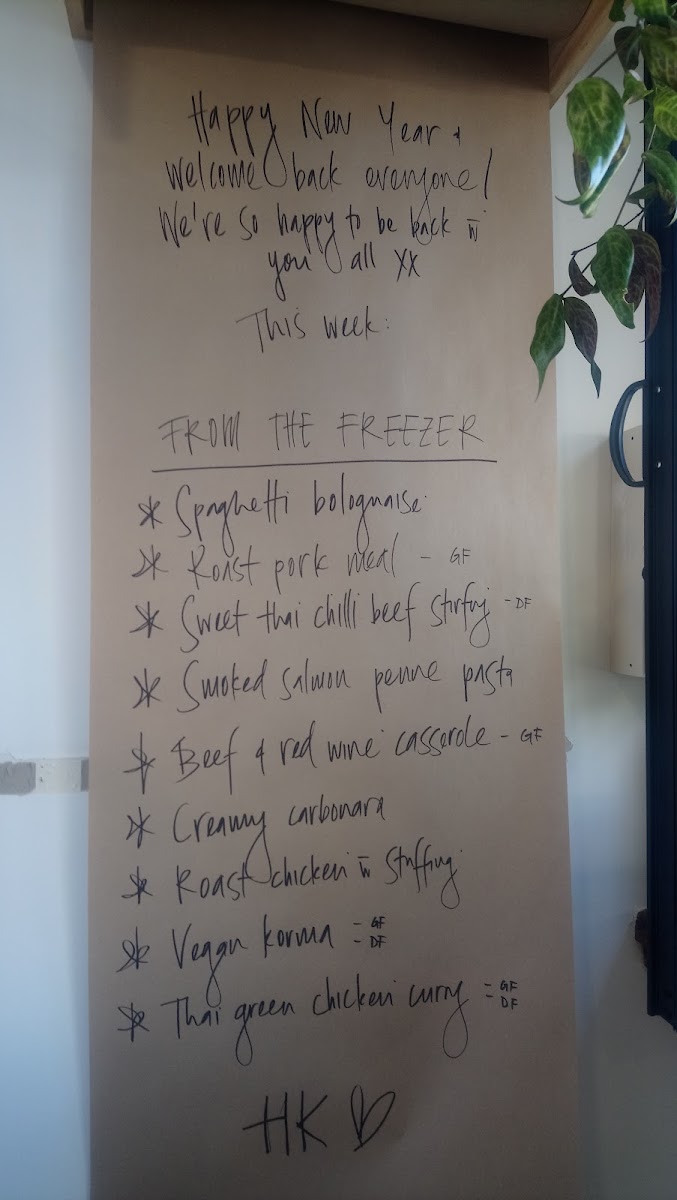 Happy New Year +
Welcome back everyone!
We're so happy to be back w̅
you all xx
This week:
FROM THE FREEZER
* Spaghetti bolognaise
* Roast pork meal - GF
* Sweet thai chilli beef stirfry - DF
* Smoked salmon penne pasta
* Beef & red wine casserole - GF
* Creamy carbonara
* Roast chicken w̅ stuffing
* Vegan korma - GF
- DF
* Thai green chicken curry - GF
- DF
HK ♡